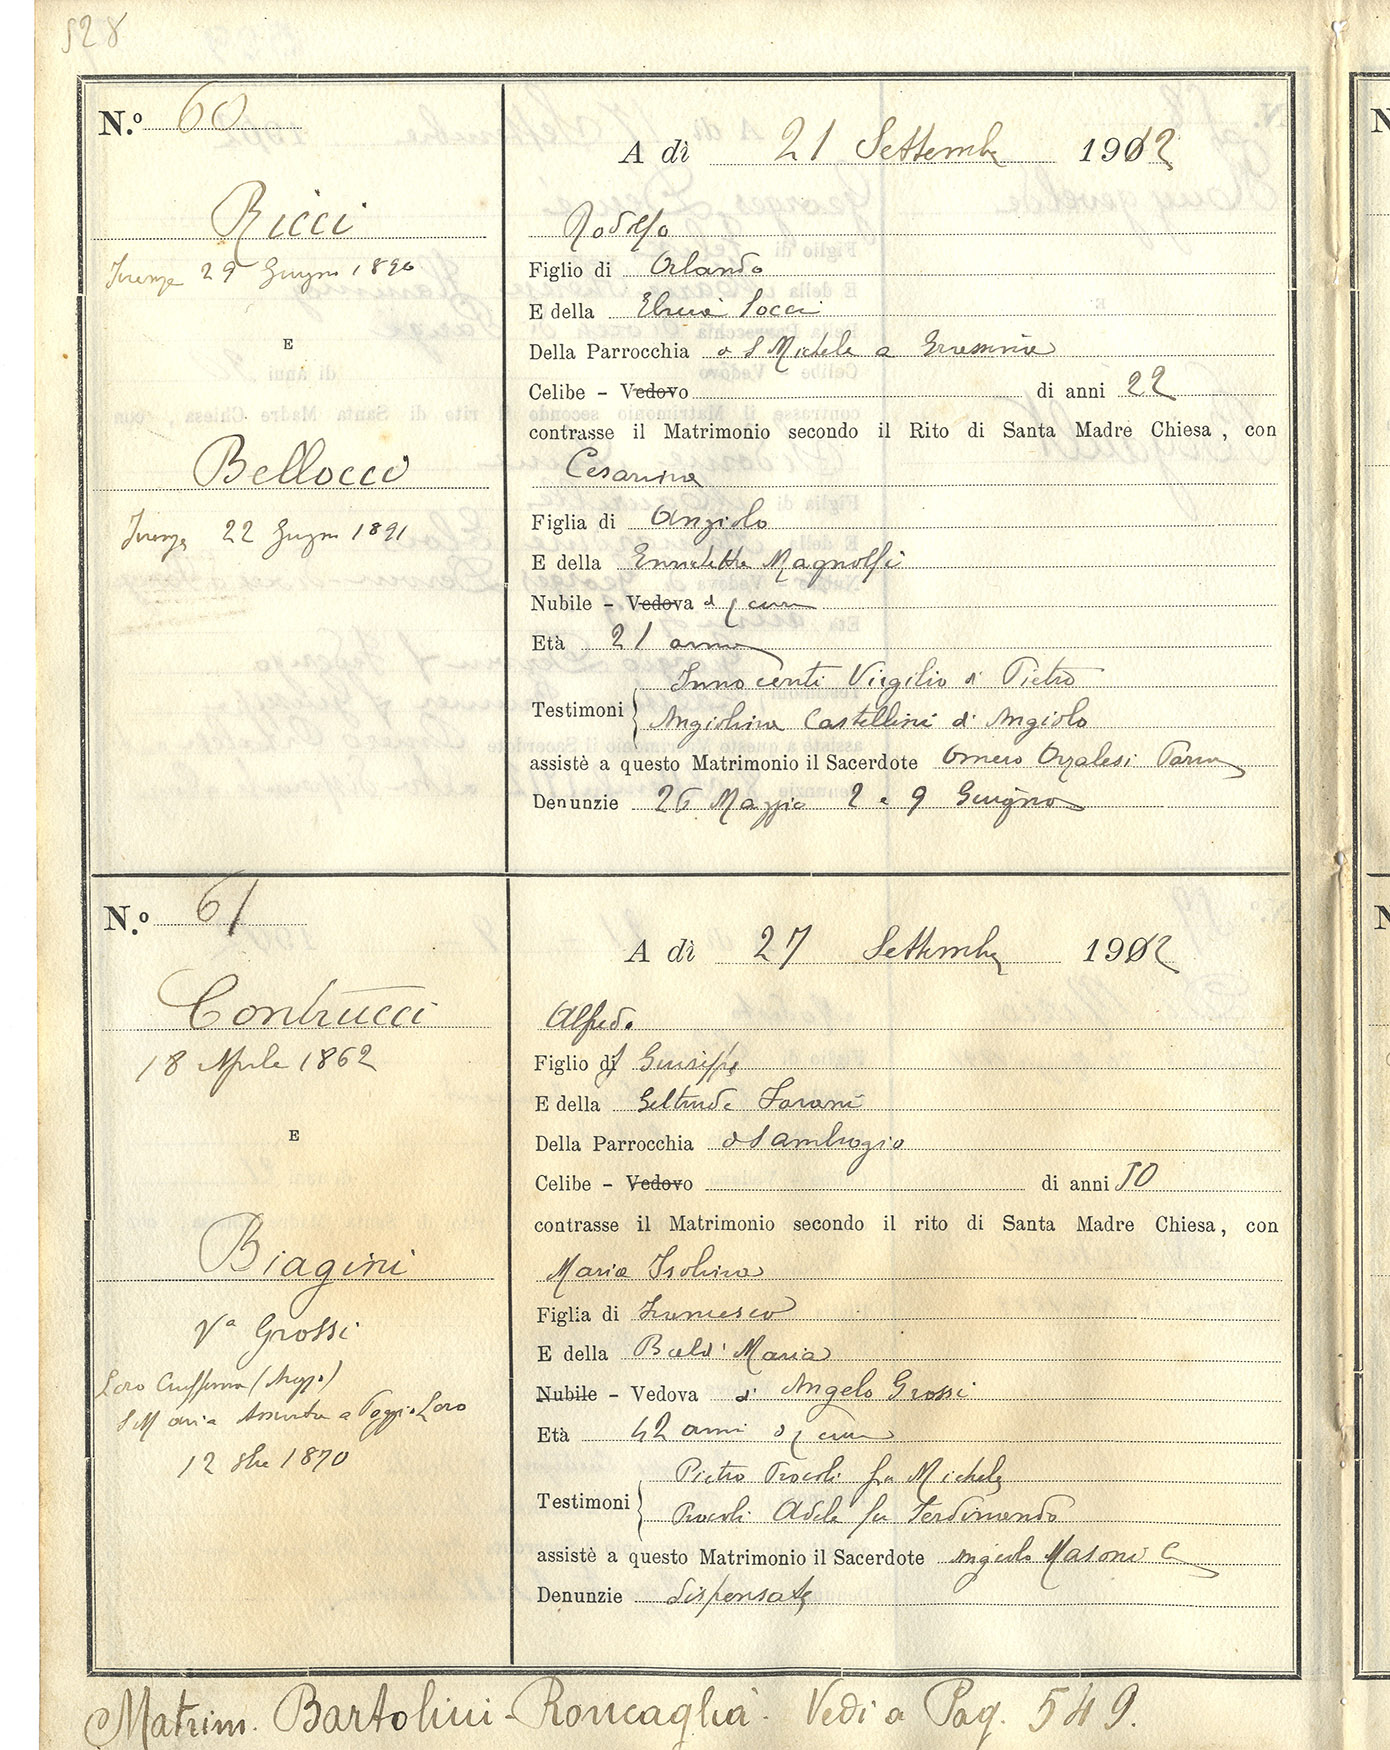 528
N.º 60
A dì 21 Settembre 1912
Ricci
Rodolfo
Firenze 29 Giugno 1890
Figlio di Orlando
E della Elvira Socci
E
Della Parrocchia di S Michele a
Celibe – Vedovo di anni 22
contrasse il Matrimonio secondo il Rito di Santa Madre Chiesa, con
Bellocci
Cesarina
Firenze 22 Giugno 1891
Figlia di Angiolo
E della Enrichetta Magnolfi
Nubile – Vedova di q cura
Età 21 anni
Testimoni
Innocenti Virgilio di Pietro
Angiolina Castellini di Angiolo
assistè a questo Matrimonio il Sacerdote Omero Orzalesi
Denunzie 26 Maggio 2 e 9 Giugno
N.º 61
A dì 27 Settembre 1912
Contrucci
Alfredo
18 Aprile 1862
Figlio di Giuseppe
E della Geltrude
E
Della Parrocchia di S Ambrogio
Celibe – Vedovo di anni 50
contrasse il Matrimonio secondo il rito di Santa Madre Chiesa, con
Biagini
Maria Isolina
Vª Grossi
Figlia di Francesco
E della Baldi Maria
Loro Ciuffenna (Arezzo)
Nubile – Vedova di Angelo Grossi
S Maria Assunta a Poggio Loro
Età 42 anni di q cura
12 8bre 1870
Testimoni
Pietro Procoli fu Michele
Procoli Adele fu Ferdinando
assistè a questo Matrimonio il Sacerdote Angiolo Masoni C
Denunzie dispensate
Matrim. Bartolini - Roncaglia. Vedi a Pag. 549.